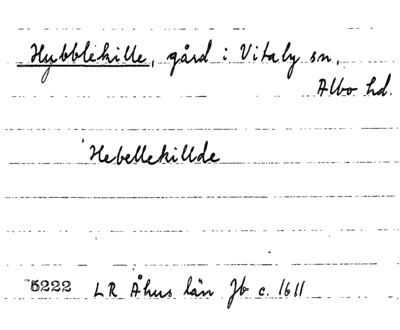 Hybblekille, gård i Vitaby sn,
Albo hd.
Hebellekillde
5222 LR Åhus län Jb c. 1611